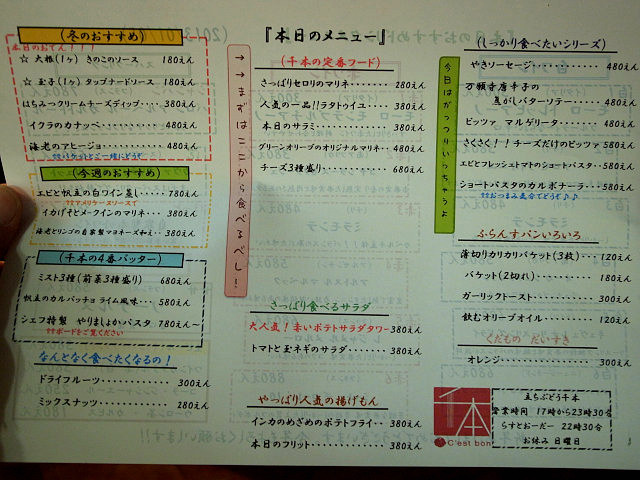 『本日のメニュー』
(冬のおすすめ)
本日のおでん！！！
☆ 大根(1ヶ) きのこのソース 180えん
☆ 玉子(1ヶ) タップナードソース 180えん
はちみつクリームチーズディップ 380えん
イクラのカナッペ 480えん
海老のアヒージョ 480えん
⇧⇧バケットとご一緒にどうぞ
(今週のおすすめ)
エビと帆立の白ワイン蒸し 780えん
⇧⇧アメリケーヌソースで
イカげそとメークインのマリネ 380えん
海老とリンゴの自家製マヨネーズ和え 380えん
(千本の4番バッター)
ミスト3種(前菜3種盛り) 680えん
帆立のカルパッチョ ライム風味 580えん
シェフ特製 やりましょかパスタ 780えん〜
⇧⇧ボードをご覧ください
なんとなく食べたくなるの！
ドライフルーツ 300えん
ミックスナッツ 280えん
→→まずはここから食べるべし！
(千本の定番フード)
さっぱりセロリのマリネ 280えん
人気の一品!!ラタトゥイユ 380えん
本日のサラミ 380えん
グリーンオリーブのオリジナルマリネ 480えん
チーズ3種盛り 680えん
さっぱり食べるサラダ
大人気！赤いポテトサラダタワー 380えん
トマトと玉ネギのサラダ 380えん
やっぱり人気の揚げもん
インカのめざめのポテトフライ 380えん
本日のフリット 380えん
今日はがっつりいっちゃうよ
(しっかり食べたいシリーズ)
やきソーセージ 480えん
万願寺唐辛子の
焦がしバターソテー 480えん
ピッツァ マルゲリータ 480えん
さくさく！！チーズだけのピッツァ 580えん
エビとフレッシュトマトのショートパスタ 580えん
ショートパスタのカルボナーラ 580えん
⇧⇧おつまみ気分でどうぞ♪♪
ふらんすパンいろいろ
薄切りカリカリバケット(3枚) 120えん
バケット(2切れ) 180えん
ガーリックトースト 300えん
飲むオリーブオイル 120えん
くだもの だいすき
オレンジ 300えん
千本
C'est bon
立ちぶどう千本
営業時間 17時から23時30分
らすとおーだー 22時30分
お休み 日曜日